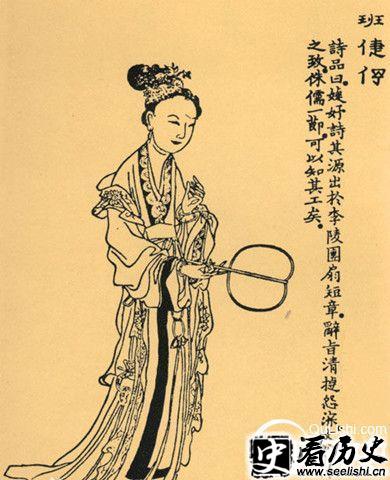 班倢伃
詩品曰。婕妤詩其源出於李陵團扇短章。辭旨清捷怨深
之致。侏儒一節。可以知其工矣。
QuLiShi.com
史看历史
www.seelishi.cn